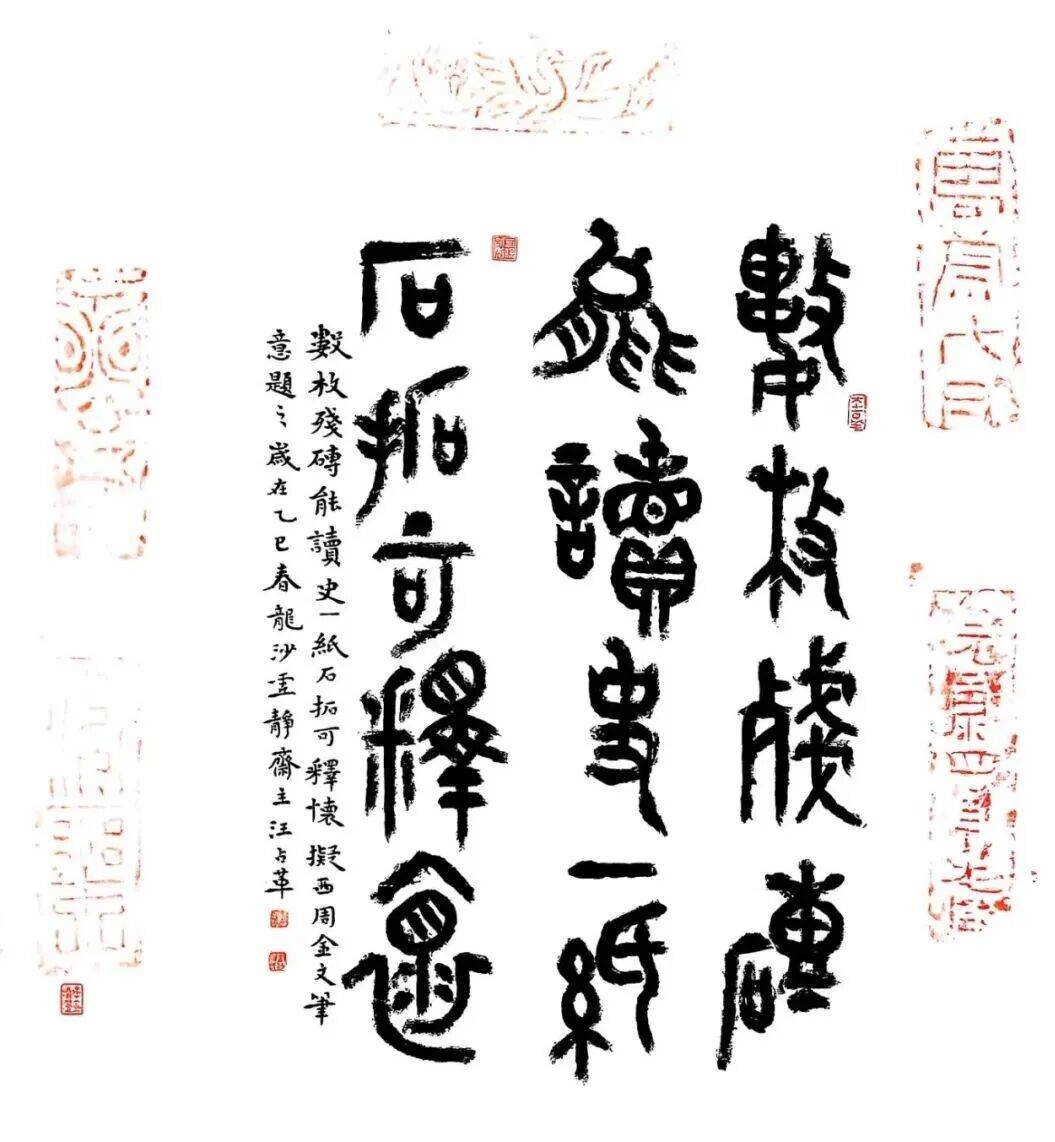 數枚殘磚
能讀史一紙
石拓可釋懷
數枚殘磚能讀史一紙石拓可釋懷擬西周金文筆
意題之歲在乙巳春龍沙靜齋主汪占革
元康四年